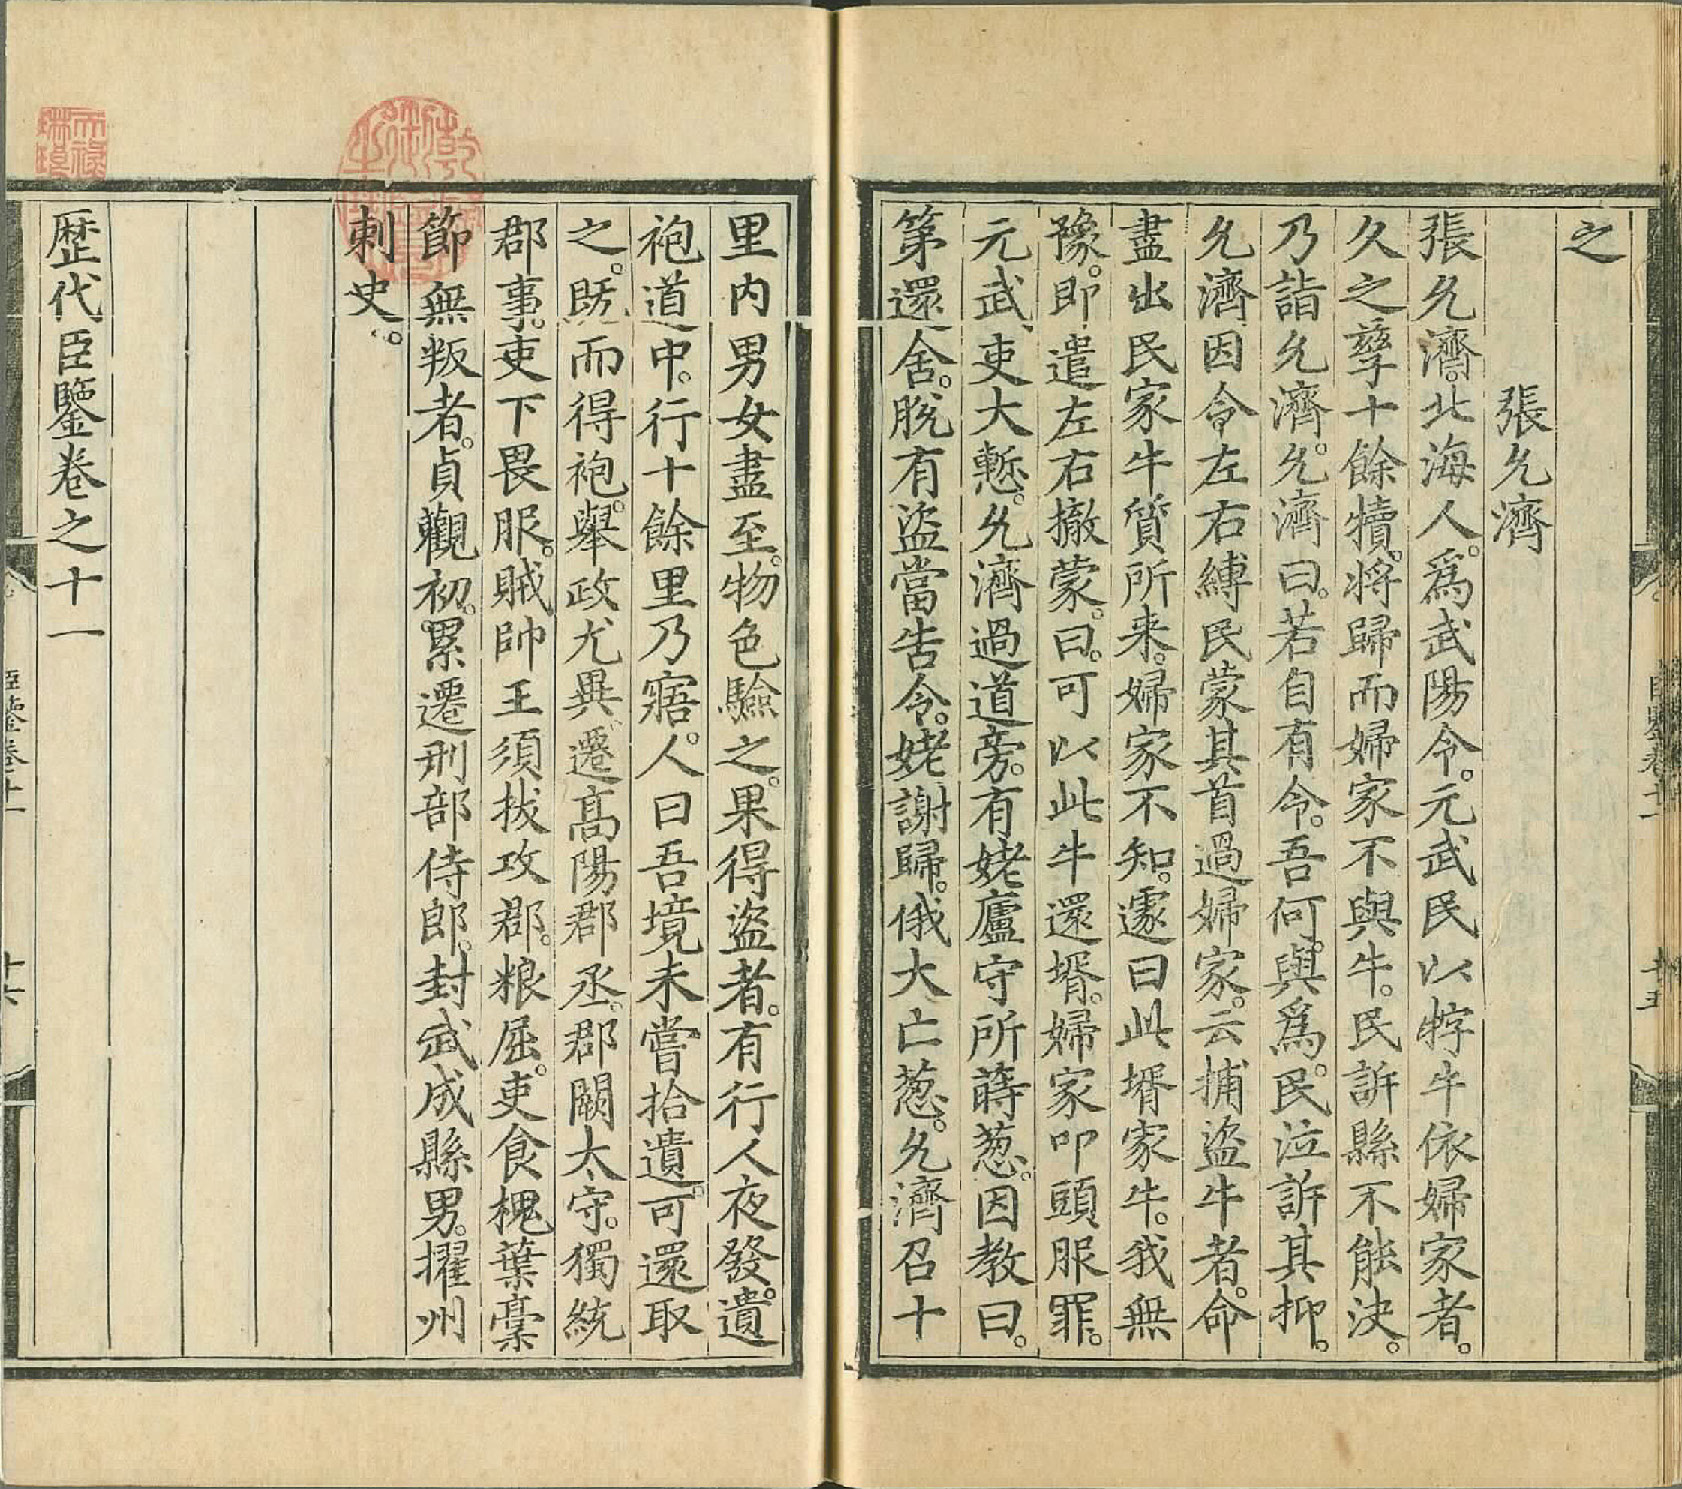 之
張允濟
張允濟。北海人。爲武陽令。元武民以牸牛依婦家者。
久之孳十餘犢。將歸而婦家不與牛。民訴縣不能決。
乃詣允濟。允濟曰。若自有令。吾何與爲。民泣訴其抑。
允濟因令左右縛民蒙其首過婦家。云捕盜牛者。命
盡出民家牛質所来。婦家不知。遽曰此壻家牛。我無
豫。即遣左右撤蒙。曰。可以此牛還壻。婦家叩頭服罪。
元武吏大慙。允濟過道旁。有姥廬守所蒔葱。因教曰。
第還舍。脫有盜當告令。姥謝歸。俄大亡葱。允濟召十
里内男女盡至。物色驗之。果得盜者。有行人夜發。遺
袍道中。行十餘里乃寤。人曰吾境未嘗拾遺。可還取
之。旣而得袍。舉政尤異遷高陽郡丞。郡闕太守。獨統
郡事。吏下畏服。賊帥王須拔攻郡。粮屈。吏食槐葉藁
節無叛者。貞觀初。累遷刑部侍郎。封武成縣男。擢州
刺史。
歷代臣鑒卷之十一